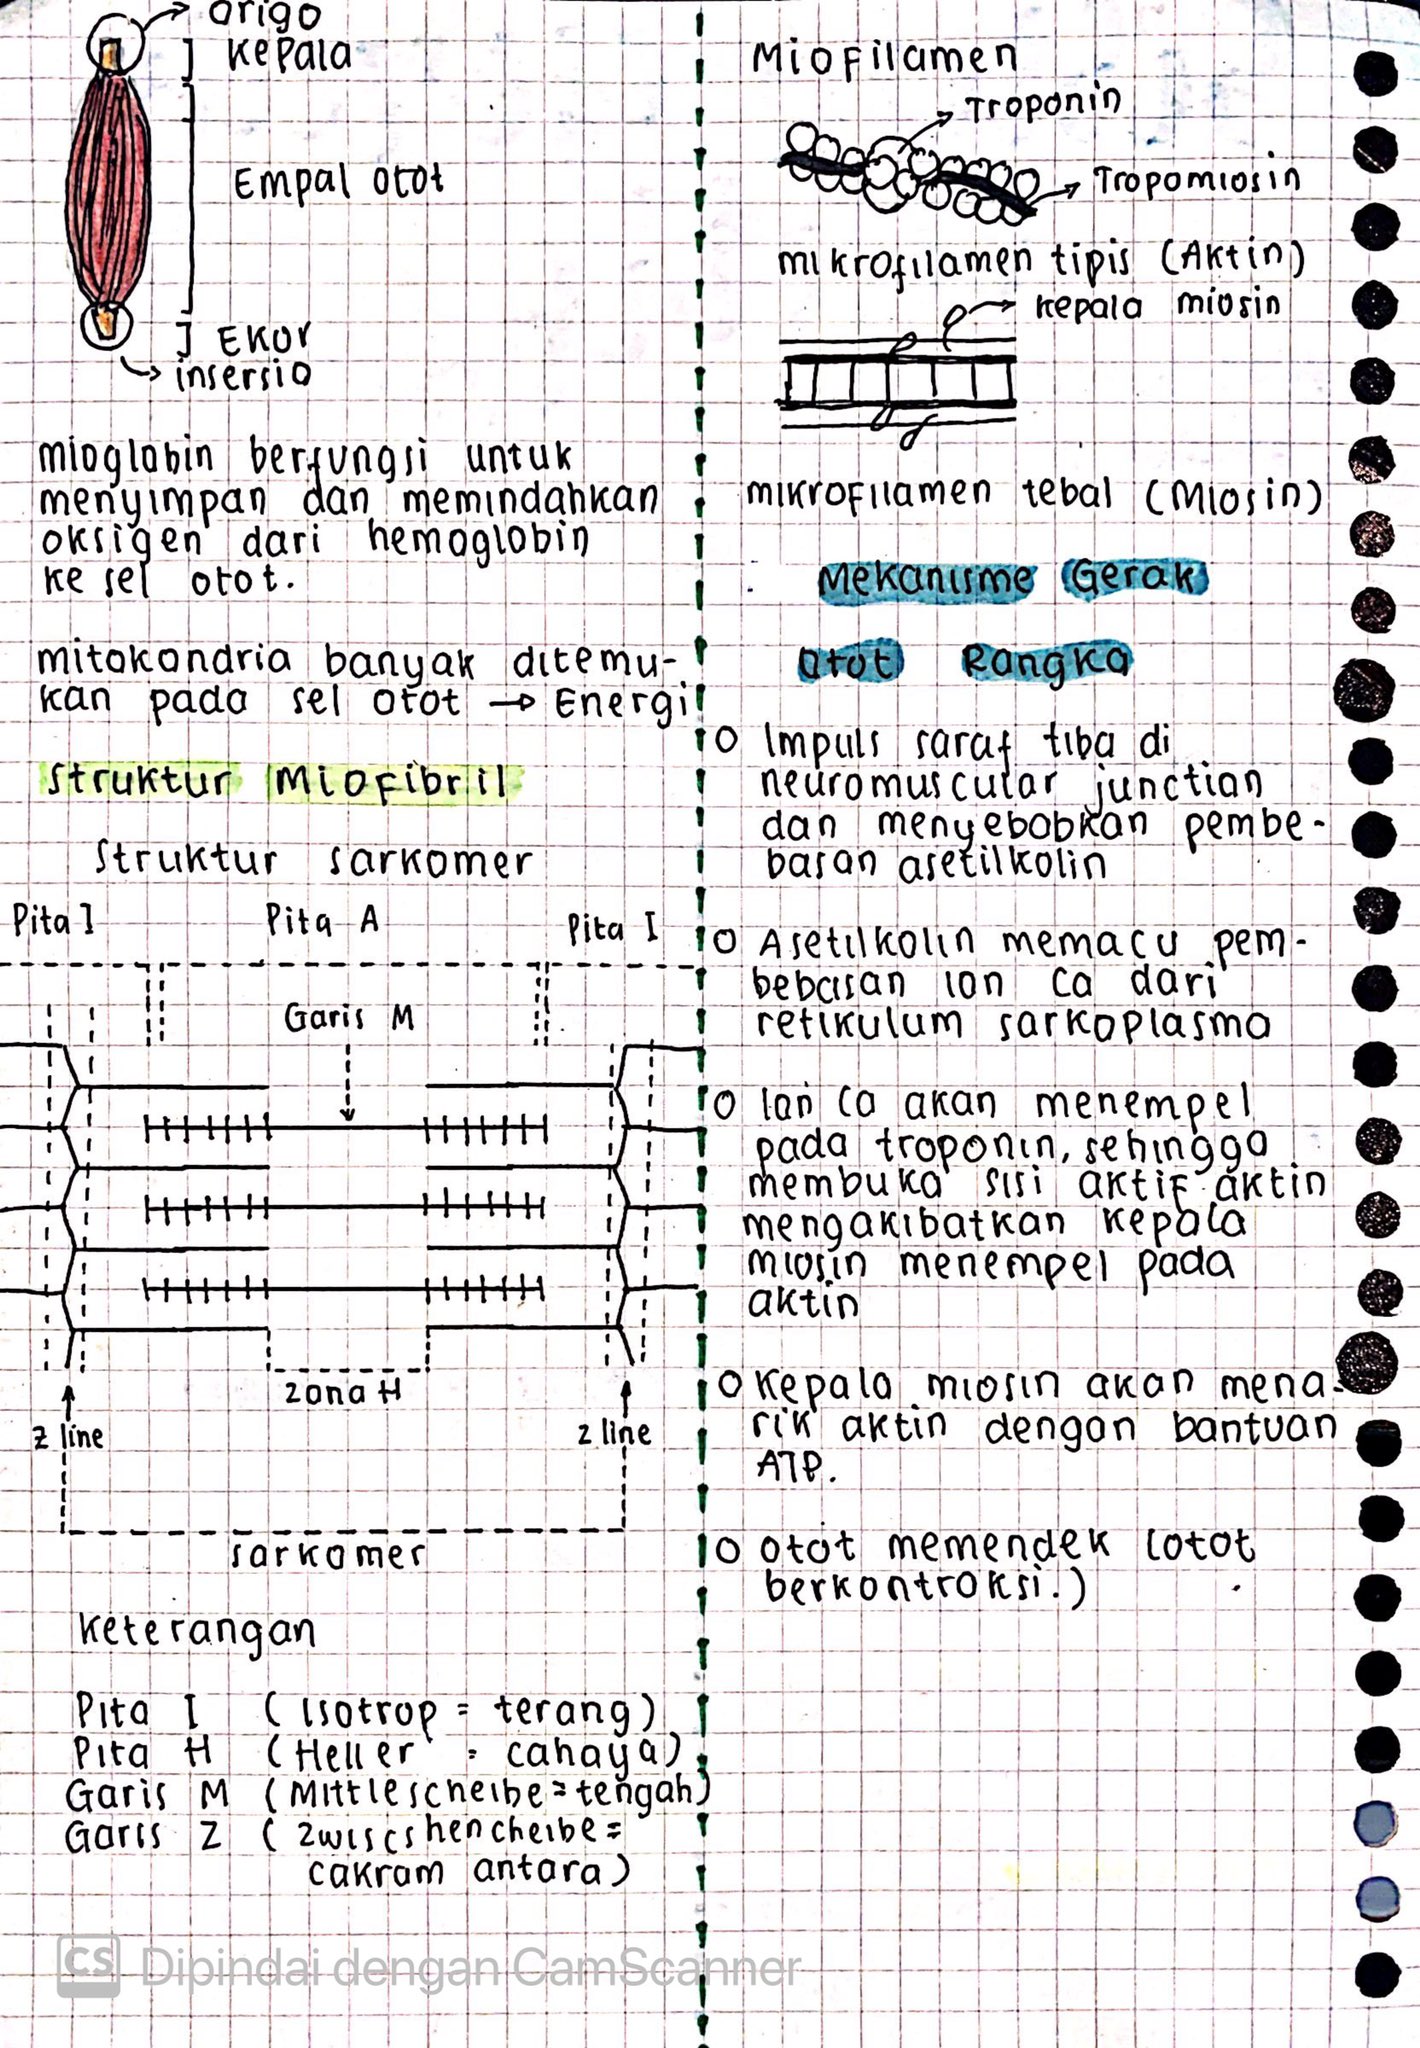 origo
Kepala
Empal otot
Ekor
insersio
mioglobin berfungsi untuk
menyimpan dan memindahkan
oksigen dari hemoglobin
ke sel otot.
mitokondria banyak ditemu-
kan pada sel otot → Energi
Struktur Miofibril
Struktur sarkomer
Pita I
Pita A
Pita I
Garis M
zona H
z line
z line
sarkomer
Keterangan
Pita I (Isotrop = terang)
Pita H (Heller = cahaya)
Garis M (Mittlescheibe = tengah)
Garis Z (zwiscshencheibe =
cakram antara)
Miofilamen
Troponin
Tropomiosin
mikrofilamen tipis (Aktin)
kepala miosin
mikrofilamen tebal (Miosin)
Mekanisme Gerak
Otot Rangka
o Impuls saraf tiba di
neuromuscular junction
dan menyebabkan pembe-
basan asetilkolin
o Asetilkolin memacu pem-
bebasan ion Ca dari
retikulum sarkoplasma
o Ion Ca akan menempel
pada troponin, sehingga
membuka sisi aktif aktin
mengakibatkan kepala
miosin menempel pada
aktin
o Kepala miosin akan mena-
rik aktin dengan bantuan
ATP.
o Otot memendek (otot
berkontraksi.)
CS Dipindai dengan CamScanner